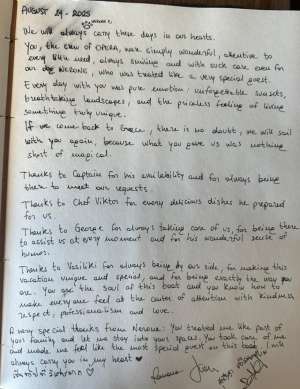 AUGUST 29 - 2025
We will always carry these days in our hearts.
You, the crew of OPERA, were simply wonderful, attentive to
every little need, always smiling and with such care even for
our dog NERONE, who was treated like a very special guest.
Every day with you was pure emotion: unforgettable sunsets,
breathtaking landscapes, and the priceless feeling of living
something truly unique.
If we come back to Greece, there is no doubt, we will sail
with you again, because what you gave us was nothing
short of magical.
Thanks to Captain for his availability and for always being
there to meet our requests.
Thanks to Chef Viktor for every delicious dishes he prepared
for us.
Thanks to George for always taking care of us, for being there
to assist us at every moment and for his wonderful sense of
humor.
Thanks to Vasiliki for always being by our side, for making this
vacation unique and special, and for being exactly the way you
are. You are the soul of this boat and you know how to
make everyone feel at the center of attention with kindness
respect, professionalism and love.
A very special thanks from Nerone: You treated me like part of
your family and let me stay into your spaces. You took care of me
and made me feel like the most special guest on this boat. I will
always carry you in my heart ♥